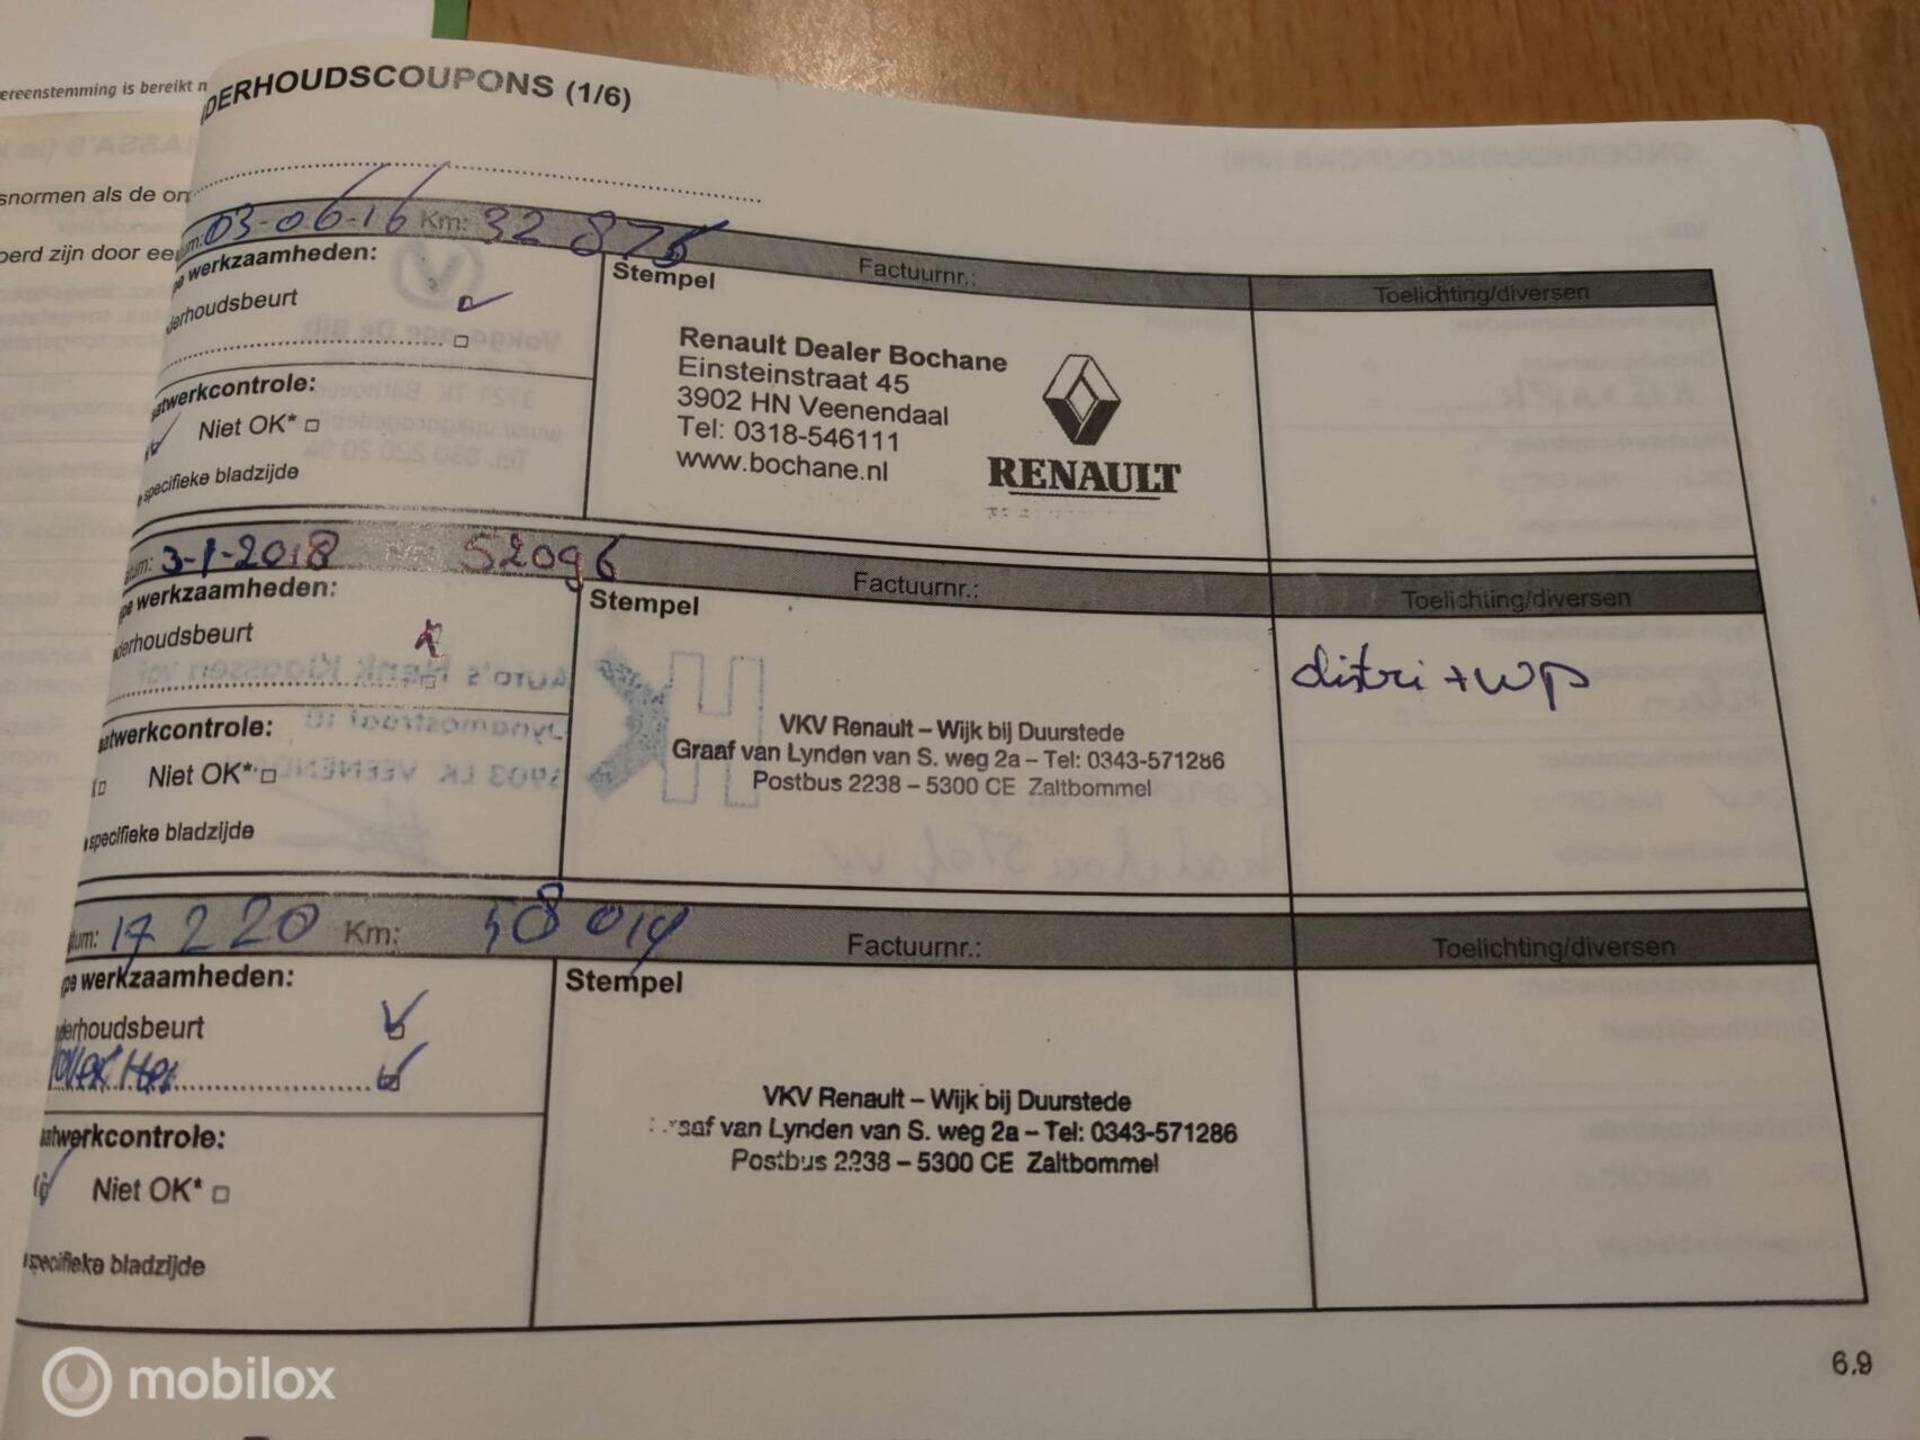 ereenstemming is bereikt
snormen als de on
oerd zijn door ee
DERHOUDSCOUPONS (1/6)
tum: 03-06-16 Km: 32 875 Factuurnr.: Toelichting/diversen
pe werkzaamheden:
Stempel
derhoudsbeurt
Renault Dealer Bochane
Einsteinstraat 45
3902 HN Veenendaal
Tel: 0318-546111
www.bochane.nl
RENAULT
aatwerkcontrole:
Niet OK*
specifieke bladzijde
atum: 3-1-2018 Km: 52096 Factuurnr.: Toelichting/diversen
pe werkzaamheden:
Stempel
derhoudsbeurt
distri + wp
VKV Renault – Wijk bij Duurstede
Graaf van Lynden van S. weg 2a – Tel: 0343-571286
Postbus 2238 – 5300 CE Zaltbommel
aatwerkcontrole:
Niet OK*
specifieke bladzijde
tum: 17 2 20 Km: 58 014 Factuurnr.: Toelichting/diversen
pe werkzaamheden:
Stempel
derhoudsbeurt
VKV Renault – Wijk bij Duurstede
raaf van Lynden van S. weg 2a – Tel: 0343-571286
Postbus 2238 – 5300 CE Zaltbommel
aatwerkcontrole:
Niet OK*
specifieke bladzijde
6.9
mobilox